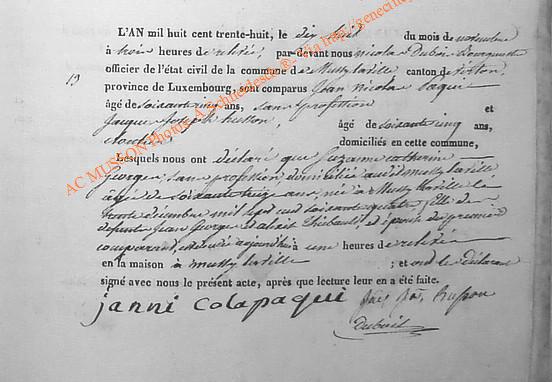 L'AN mil huit cent trente-huit, le dix huit du mois de novembre
à trois heures de relevée, par-devant nous nicolas Dubois Bourguemestre
officier de l'état civil de la commune de Mussy laville canton de virton,
13
province de Luxembourg, sont comparus Jean Nicolas
âgé de soixante cinq ans, sans profession et
Jacque Joseph husson, âgé de soixante cinq ans,
domiciliés en cette commune,
Lesquels nous ont déclaré que Suzanne catherine
George, sans profession domiciliée audit mussy laville
âgée de soixante treize ans, née à Mussy laville le
trente décembre mil sept cent soixante quatre, fille de
Jean George et d' Thiebault, et épouse du premier
comparant, est décédée aujourd'hui à une heures de relevée
en la maison à mussy laville ; et ont le déclarant
signé avec nous le présent acte, après que lecture leur en a été faite.
janni colapaqui husson